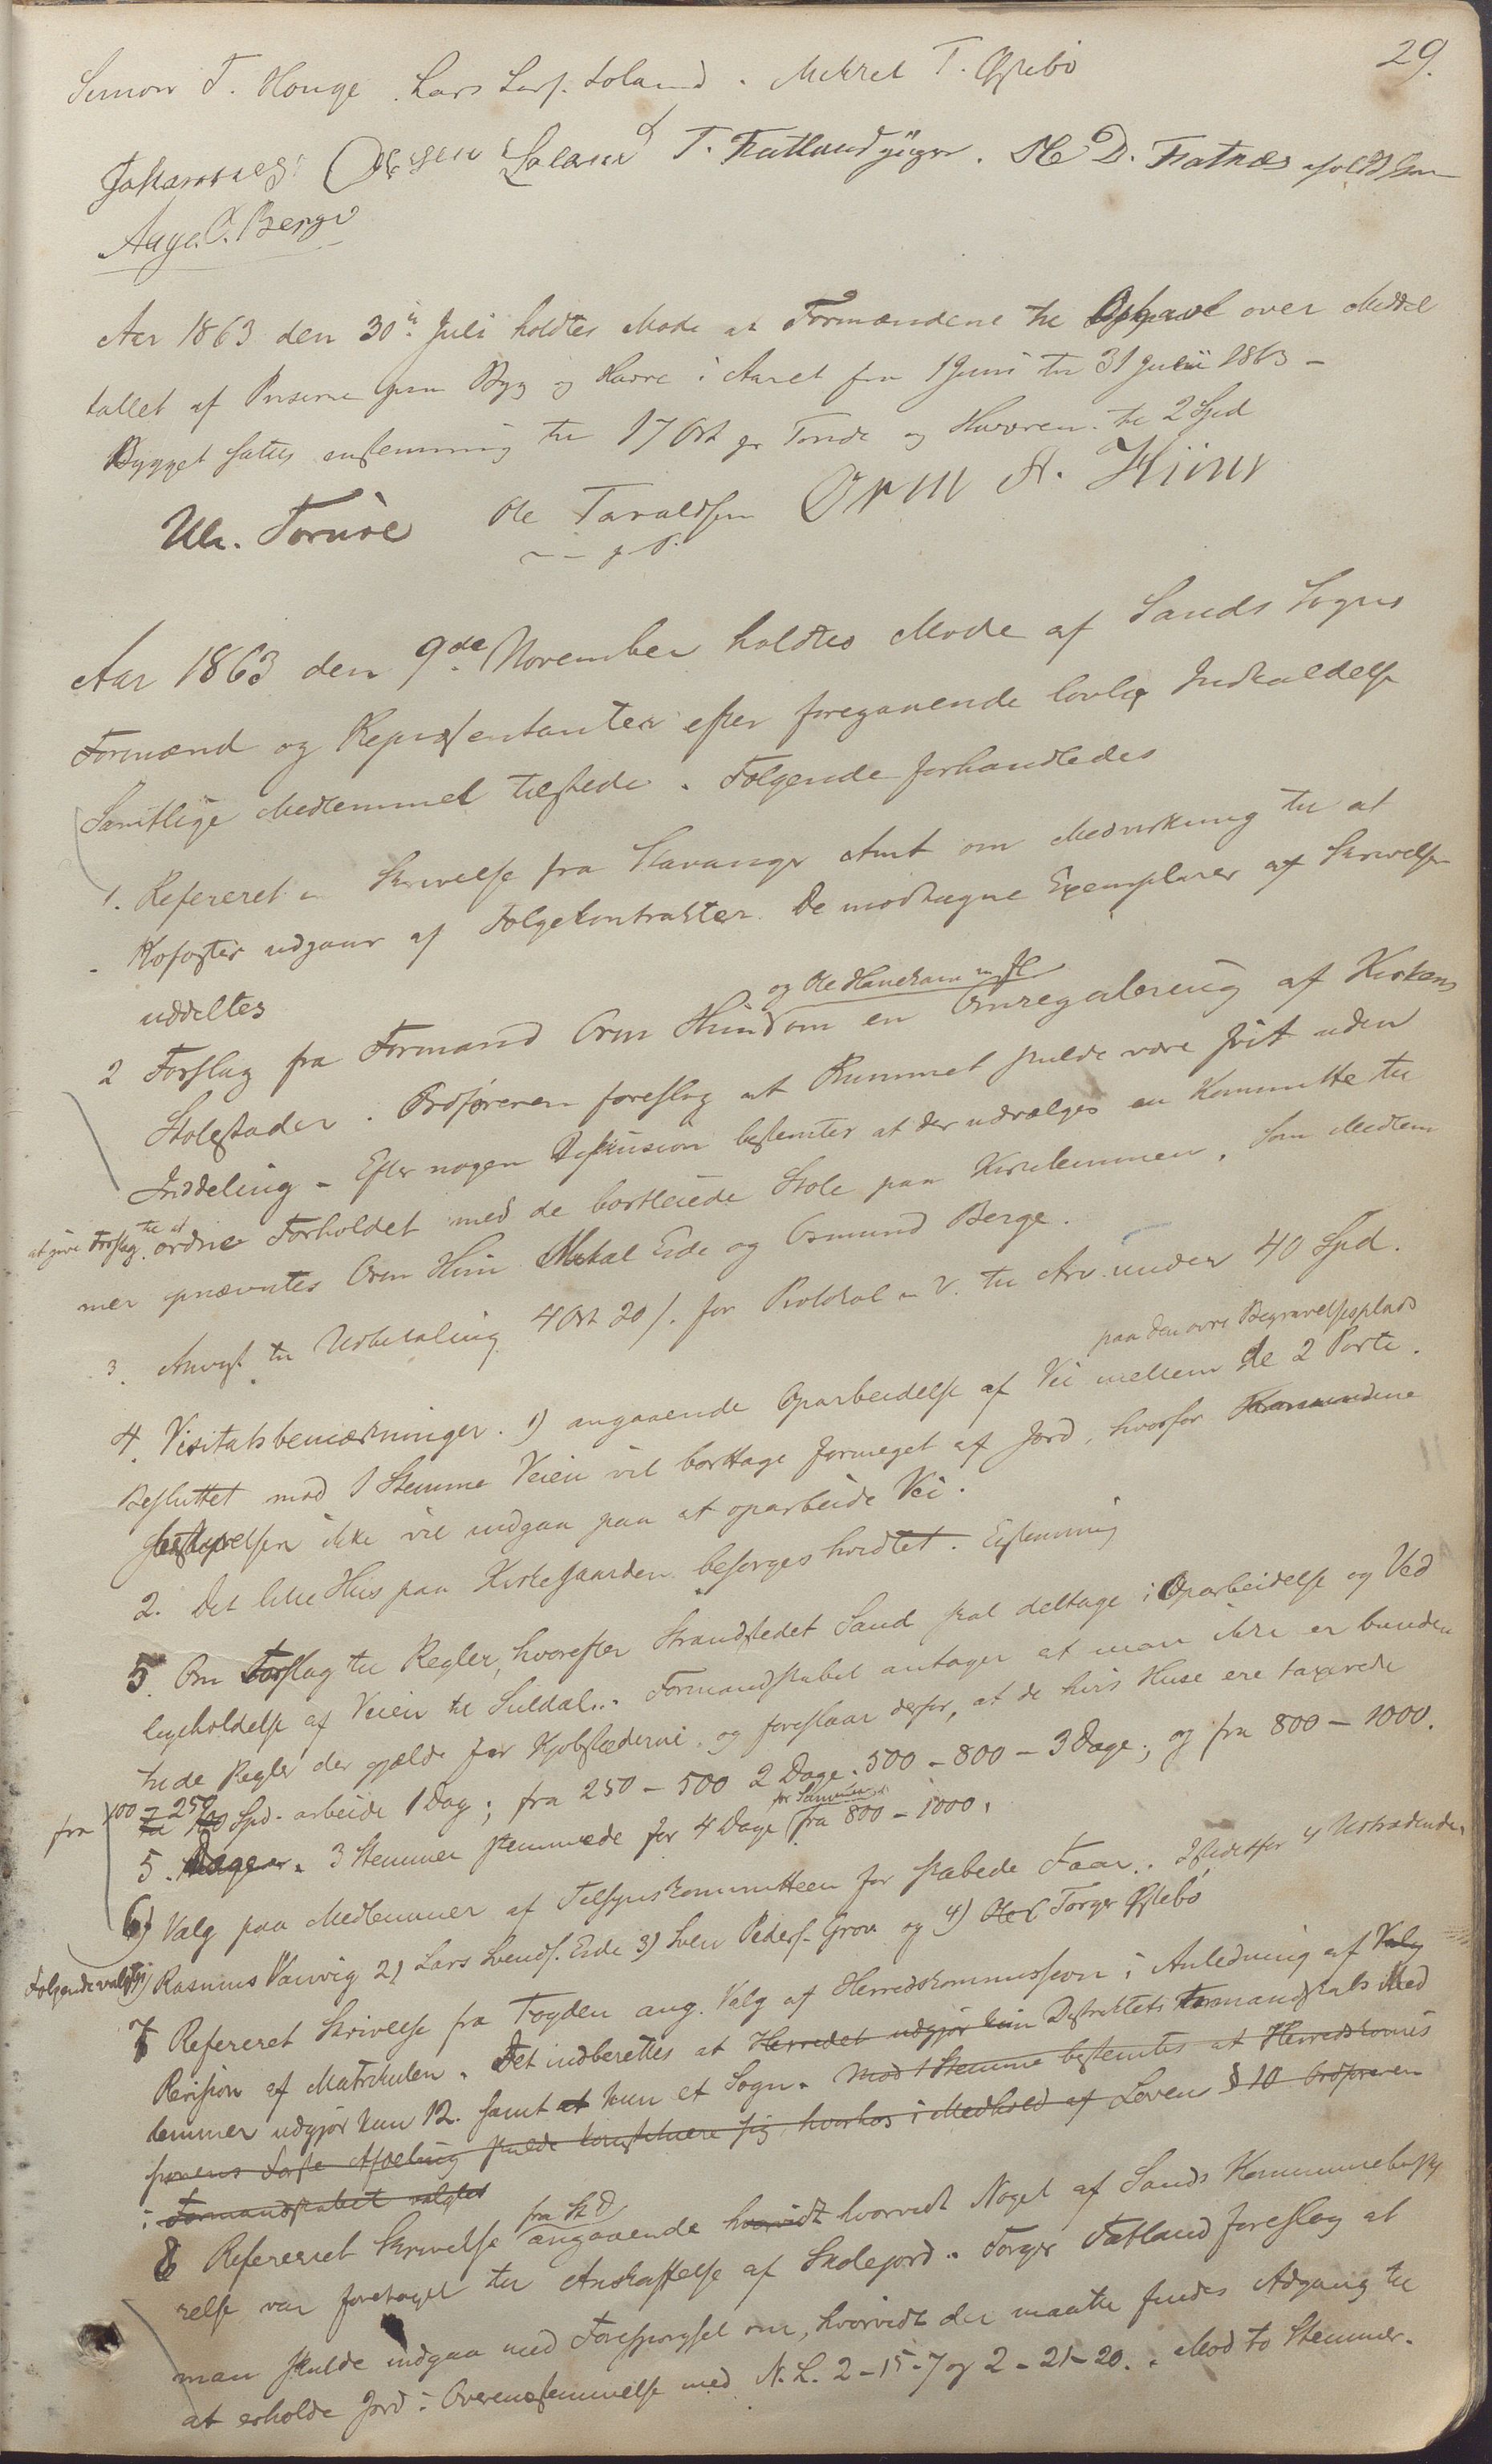 29.
Simon T. Houge. Lars Lars. Loland. Mikkel T. Østebö
Johannes Olsen Laland T. Fatland gÿgr. H D. Fatnæs
Aage. O. Berge
Aar 1863 den 30te Juli holdtes Møde af Formændene til Opgave over Middel
tallet af Priserne paa Byg og Havre i Aaret fra 1 Juni til 31 Juli 1863 –
Bygget sattes enstemmig til 17 Ort pr Tønde og Havren til 2 Spd
Ul. Tornöe Ole Taraldsen Orm A. Hiim
Aar 1863 den 9de November holdtes Møde af Sands Sogns
Formænd og Repræsentanter efter foregaaende lovlig Indkaldelse
Samtlige Medlemmer tilstede. Følgende forhandledes
1. Refereret Skrivelse fra Stavanger Amt om Medvirkning til at
Kofoster udgaar af Følgekontrakter. De modtagne Exemplarer af Skrivelsen
uddeltes
og Ole Handeland m fl
2 Forslag fra Formand Orm Hiim om en Omregulering af Kirkens
Stolestader. Ordføreren foreslog at Rummet skulde være frit uden
Inddeling – Efter nogen Diskussion bestemtes at der udvælges en Kommitte til
at give Forslag til at ordne Forholdet med de bortleiede Stole paa Kirkelemmen. Som Medlem
mer opnævntes Orm Hiim Mikal Eide og Osmund Berge.
3. Anvist til Udbetaling 4 Ort 20 s. for Protokol til Arv under 40 Spd.
paa den øvre Begravelsesplads
4. Visitatsbemærkninger. 1) angaaende Oparbeidelse af Vei mellem de 2 Porte.
Besluttet mod 1 Stemme Veien vil borttage formeget af Jord, hvorfor Kommune
bestyrelsen ikke vil indgaa paa at oparbeide Vei.
2. Det lille Hus paa Kirkegaarden besørges hvidtet. Enstemmig
5. Om Forslag til Regler, hvorefter Strandstedet Sand skal deltage i Oparbeidelse og Ved
ligeholdelse af Veien til Suldal.. Formandskabet antager at man ikke er bunden
til de Regler der gjælde for Kjøbstæderne, og foreslaar derfor, at de hvis Huse ere taxerede
fra 100 – 250 Spd. arbeide 1 Dag; fra 250 – 500 2 Dage. 500 – 800 – 3 Dage; og fra 800 – 1000.
5. Dage. 3 Stemmer stemmede for 4 Dage fra 800 – 1000.
6) Valg paa Medlemmer af Tilsynskommitteen for skabede Faar. Istedetfor 4 Udtrædende.
Følgende valgtes 1) Rasmus Vanvig 2) Lars Svends. Eide 3) Sven Peders. Grov og 4) Torger Østebø
7 Refereret Skrivelse fra Fogden ang. Valg af Herredskommission i Anledning af Valg
Revision af Matrikulen. Det indberettes at Herredet udgjør kun Distriktets Formandskabs Med
lemmer udgjør kun 12. samt at kun et Sogn. Mod 1 Stemme bestemtes at Herredskommis
sionens første Afdeling skulde konstituere sig, hvorhos i Medhold af Loven § 10 Ordføreren
i Formandskabet valgtes
8 Refereret Skrivelse fra St D angaaende hvorvidt hvorvidt Noget af Sands Kommunebesty
relse var foretaget til Anskaffelse af Skolejord. Torger Fatland foreslog at
man skulde indgaa med Forespørgsel om, hvorvidt der maatte findes Adgang til
at erholde Jord i Overensstemmelse med N. L. 2-15-7 og 2-21-20. Mod to Stemmer.